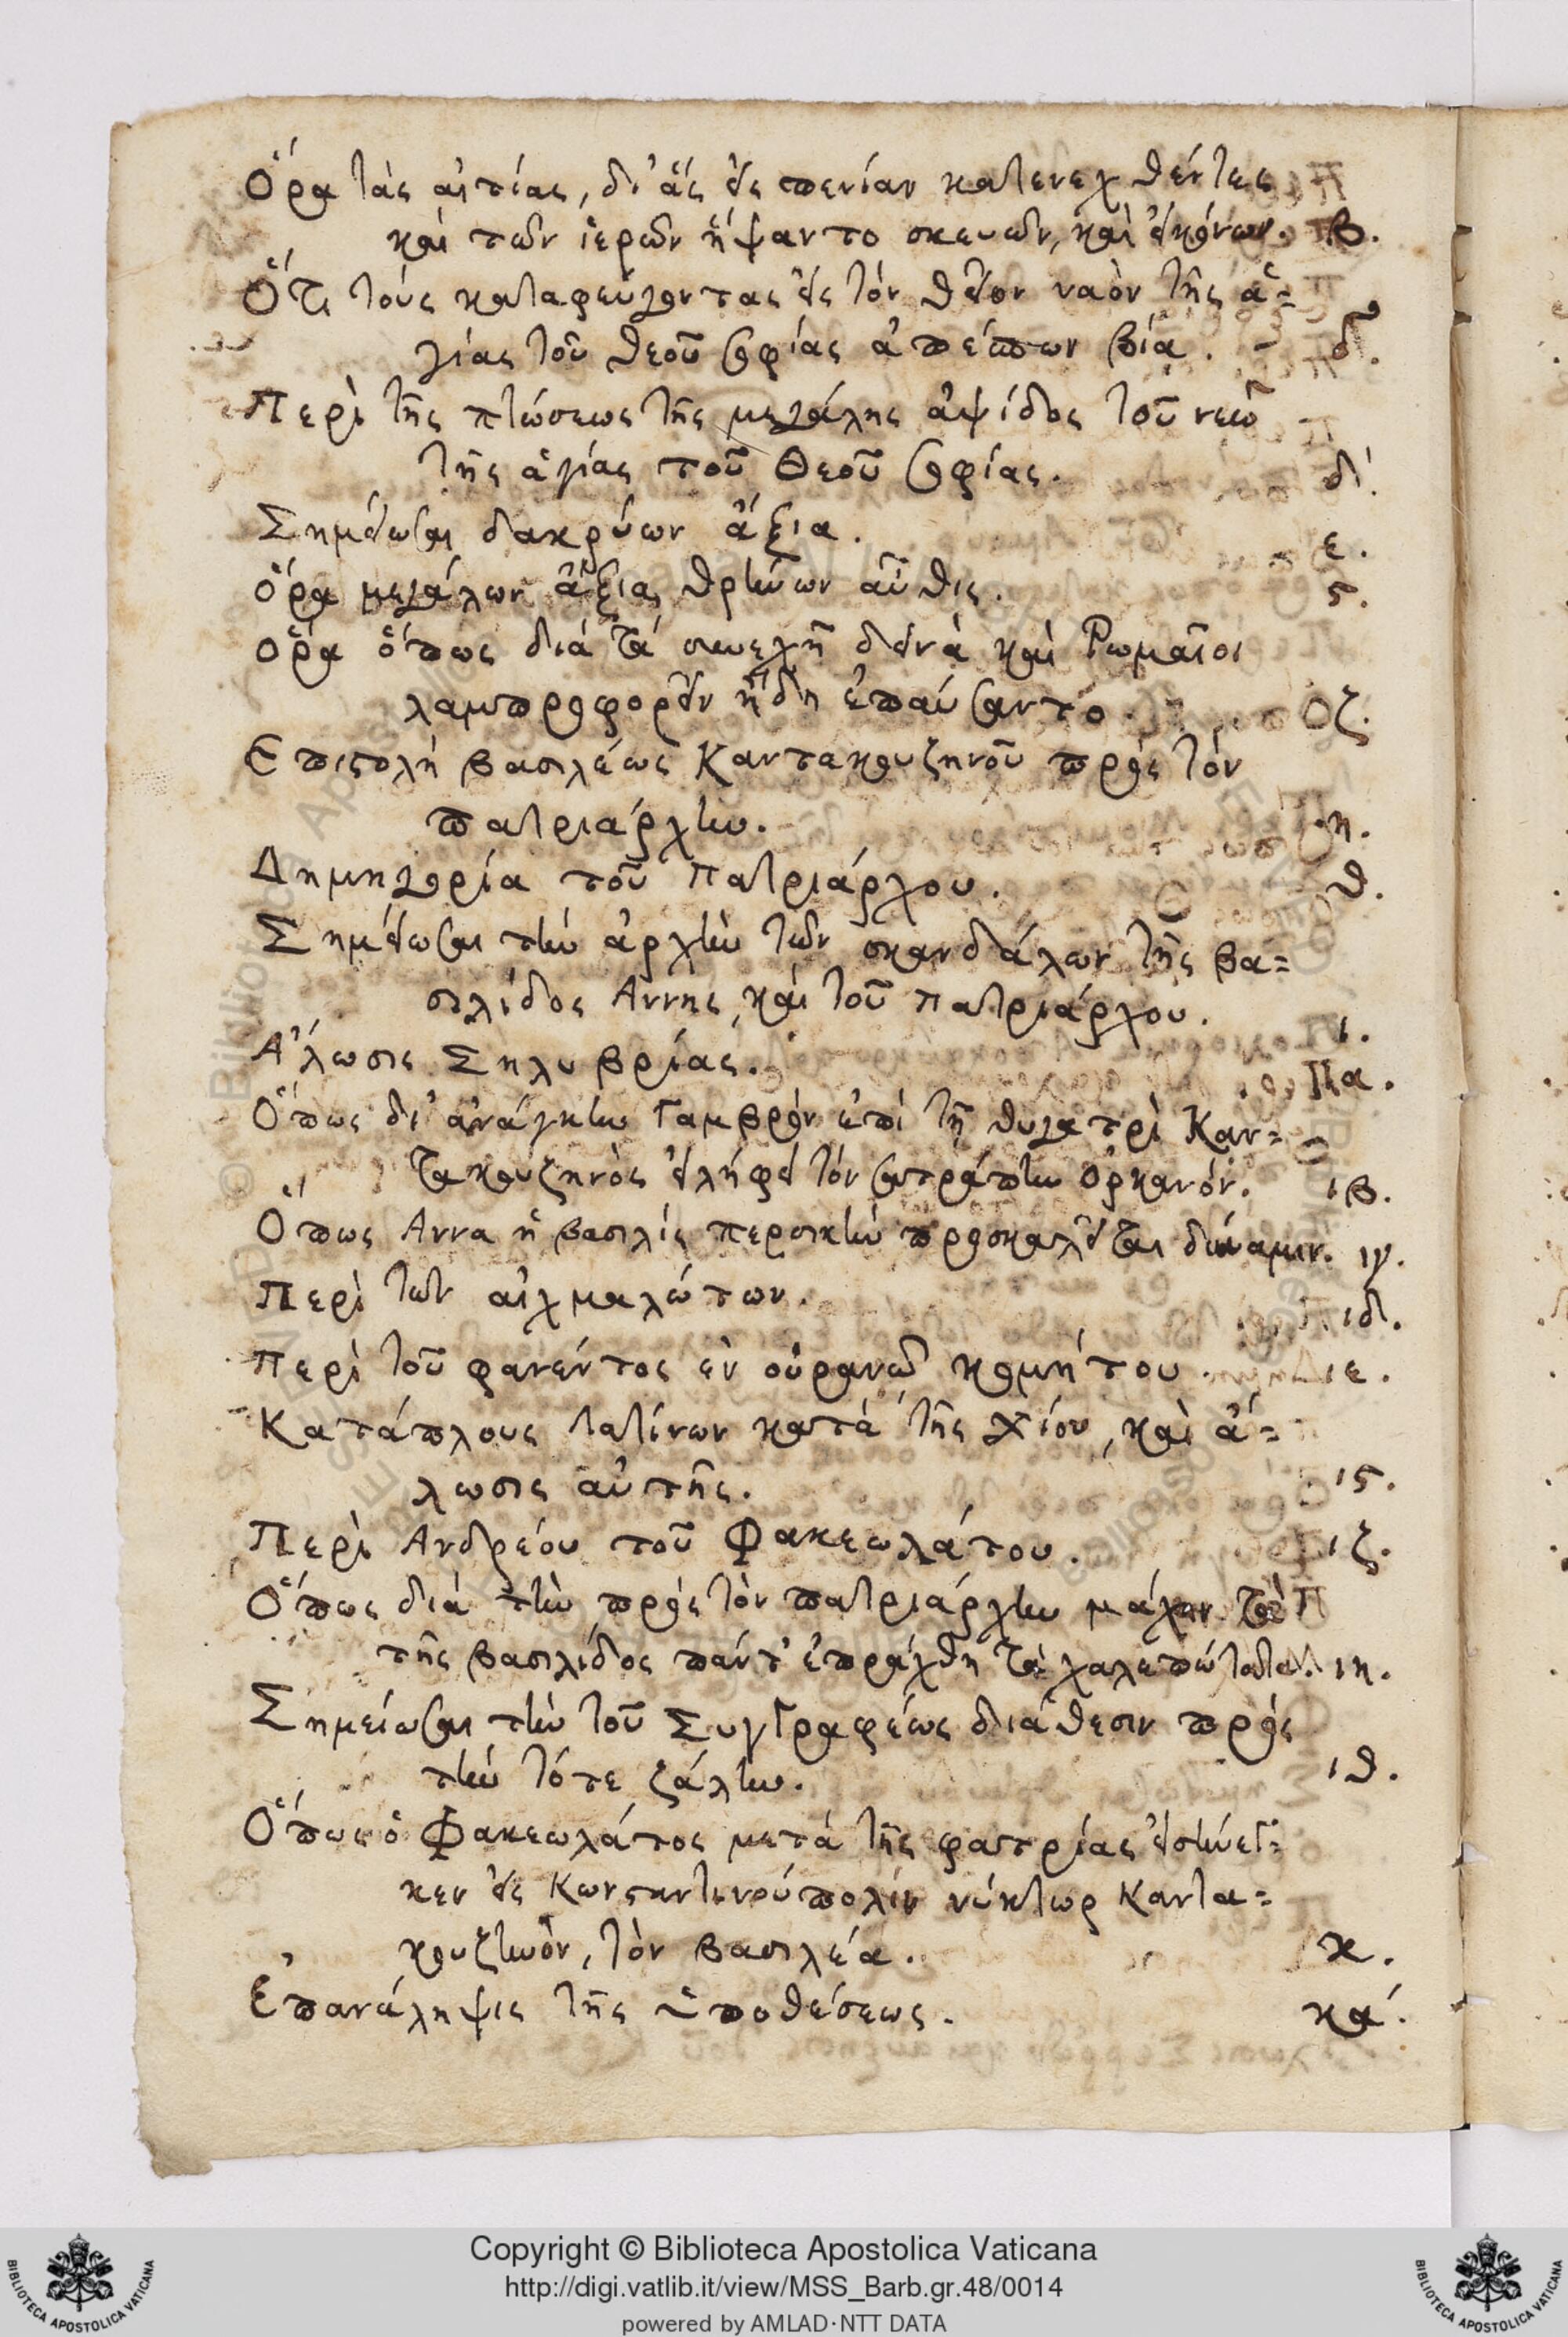 Ὅρα τὰς αἰτίας, δι' ἃς εἰς πενίαν κατενεχθέντες
καὶ τῶν ἱερῶν ἥψαντο σκευῶν, καὶ εἰκόνων. β.
Ὅτι τοὺς καταφεύγοντας εἰς τὸν θεῖον ναὸν τῆς ἁ=
γίας τοῦ θεοῦ σοφίας βία. δ.
Περὶ τῆς πτώσεως τῆς μεγάλης ἁψίδος τοῦ νεὼ
τῆς ἁγίας τοῦ Θεοῦ σοφίας. δ.
Σημείωσαι δακρύων ἄξια. ε.
Ὅρα μεγάλων ἄξια θρήνων αὖθις. ϛ.
Ὅρα ὅπως διὰ τὰ συνεχῆ δεινὰ καὶ Ρωμαῖοι
λαμπροφορεῖν ἤδη ἐπαύσαντο. ζ.
Επιστολὴ βασιλέως Καντακουζηνοῦ πρὸς τὸν
πατριάρχην. η.
Δημηγορία τοῦ Πατριάρχου. θ.
Σημείωσαι τὴν ἀρχὴν τῶν σκανδάλων τῆς βα=
σιλίδος Αννης, καὶ τοῦ Πατριάρχου. ι.
Ἅλωσις Σηλυβρίας. ια.
Ὅπως δι' ἀνάγκην Γαμβρὸν ἐπὶ τῇ θυγατρὶ Καν=
τακουζηνὸς εἰλήφει τὸν σατράπην Ὀρκανόν. ιβ.
Ὅπως Αννα ἡ βασιλὶς περσικὴν προσκαλεῖται δύναμιν. ιγ.
Περὶ τῶν αἰχμαλώτων. ιδ.
Περὶ τοῦ φανέντος ἐν οὐρανῷ κομήτου. ιε.
Κατάπλους λατίνων κατὰ τῆς Χίου, καὶ ἅ=
λωσις αὐτῆς. ιϛ.
Περὶ Ανδρέου τοῦ Φακεωλάτου. ιζ.
Ὅπως διὰ τὴν πρὸς τὸν πατριάρχην μάχην τὰ
τῆς βασιλίδος πάντ' ἐπράχθη τὰ χαλεπώτατα. ιη.
Σημείωσαι τὴν τοῦ Συγγραφέως διάθεσιν πρὸς
τὴν τότε ζάλην. ιθ.
Ὅπως ὁ Φακεωλάτος μετὰ τῆς φατρίας εἰσήνεγ=
κεν εἰς Κωνσταντινούπολιν νύκτωρ Καντα=
κουζηνὸν, τὸν βασιλέα. κ.
Ἐπανάληψις τῆς ὑποθέσεως. κα.
Copyright © Biblioteca Apostolica Vaticana
http://digi.vatlib.it/view/MSS_Barb.gr.48/0014
powered by AMLAD·NTT DATA